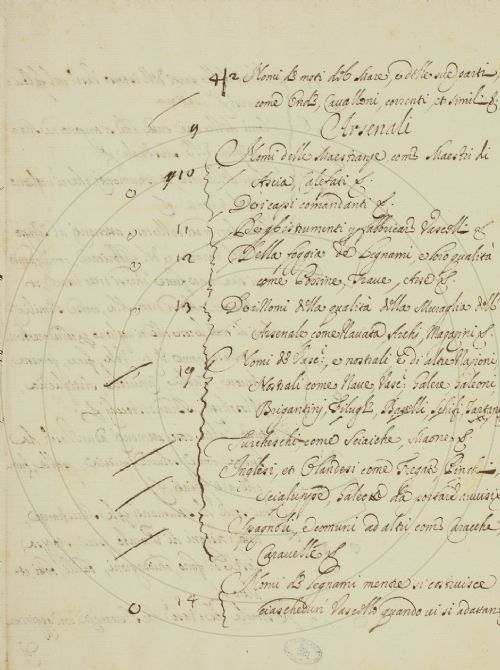 4/2 Nomi de moti del Mare, e delle sue parti,
come Onde, Cavalloni, correnti, et simili &
Arsenali
9
Nomi delle Maestranze come Maestri di
910 Ascia Calefati &.
De i capi comandanti &.
11 De gl'istrumenti p fabbricare Vascelli &
12 Della foggia de Legnami e loro qualità
come Trave, Asse &.
13 De i Nomi della qualità della Muraglia dell'
Arsenale come Navata Archi, Magazini &.
Nomi de Vasc.i, e nostrali e di altre Nazioni
19 Nostrali come Nave Vasc.i Galere Galeoni
Brigantinj Filughe, Battelli Schifi Tartane
Turcheschi come Scaiche, Maone &.
Inglesi, et Olandesi come Fregate
Scialuppe, Galeotte da portare avvisi
Spagnoli, e comuni ad altri come Caracche,
Caravelle &
Nomi de Legnami mentre si costruisce
14 ciaschedun Vascello quando vi si adattano